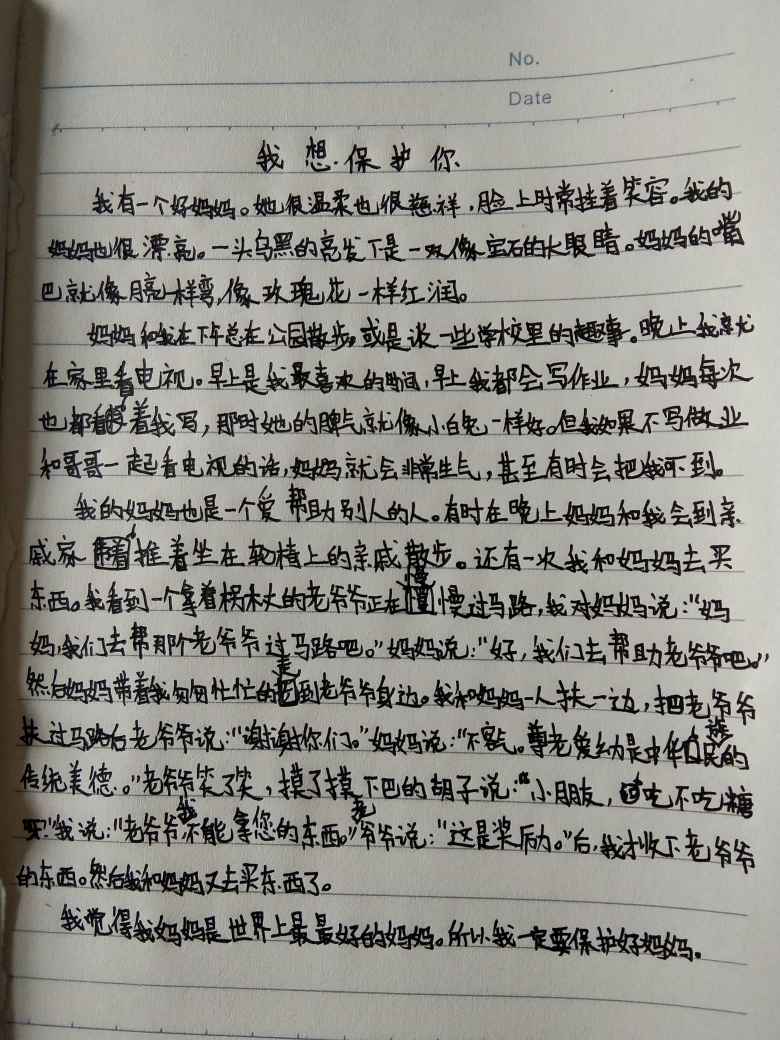 No.
Date
我想保护你
我有一个好妈妈。她很温柔也很慈祥，脸上时常挂着笑容。我的
妈妈也很漂亮。一头乌黑的亮发下是一双像宝石的大眼睛。妈妈的嘴
巴就像月亮一样弯，像玫瑰花一样红润。
妈妈和我在下午总在公园散步，或是谈一些学校里的趣事。晚上我就
在家里看电视。早上是我最喜欢的时间，早上我都会写作业，妈妈每次
也都着我写，那时她的脾气就像小白兔一样好。但我如果不写做业
和哥哥一起看电视的话，妈妈就会非常生气，甚至有时会把我吓到。
我的妈妈也是一个爱帮助别人的人。有时在晚上妈妈和我会到亲
戚家推着坐在轮椅上的亲戚散步。还有一次我和妈妈去买
东西。我看到一个拿着拐木丈的老爷爷正在慢慢过马路，我对妈妈说：“妈
妈，我们去帮那个老爷爷过马路吧。”妈妈说：“好，我们去帮助老爷爷吧。”
然后妈妈带着我匆匆忙忙的走到老爷爷身边。我和妈妈一人扶一边，把老爷爷
扶过马路后老爷爷说：“谢谢你们。”妈妈说：“不客气。尊老爱幼是中华民族的
传统美德。”老爷爷笑了笑，摸了摸下巴的胡子说：“小朋友，吃不吃糖
”我说：“老爷爷我不能拿您的东西。”老爷爷说：“这是奖励。”后，我才收下老爷爷
的东西。然后我和妈妈又去买东西了。
我觉得我妈妈是世界上最最好的妈妈。所以我一定要保护好妈妈。